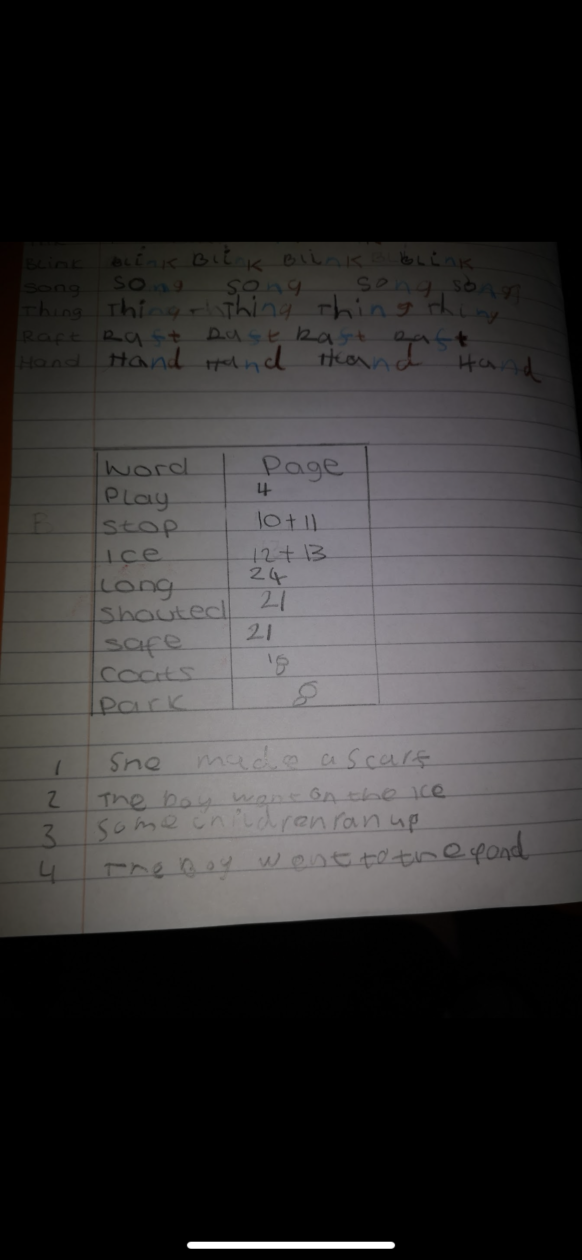 Blink Blink Blink Blink Blink
Song song song song song
Thing Thing Thing Thing Thing
Raft Raft Raft Raft Raft
Hand Hand Hand Hand Hand
Word Page
Play 4
Stop 10+11
ice 12+13
Long 24
Shouted 21
Safe 21
Coats 18
Park 8
1 She made a scarf
2 The boy went on the ice
3 Some children ran up
4 The Boy went to the pond